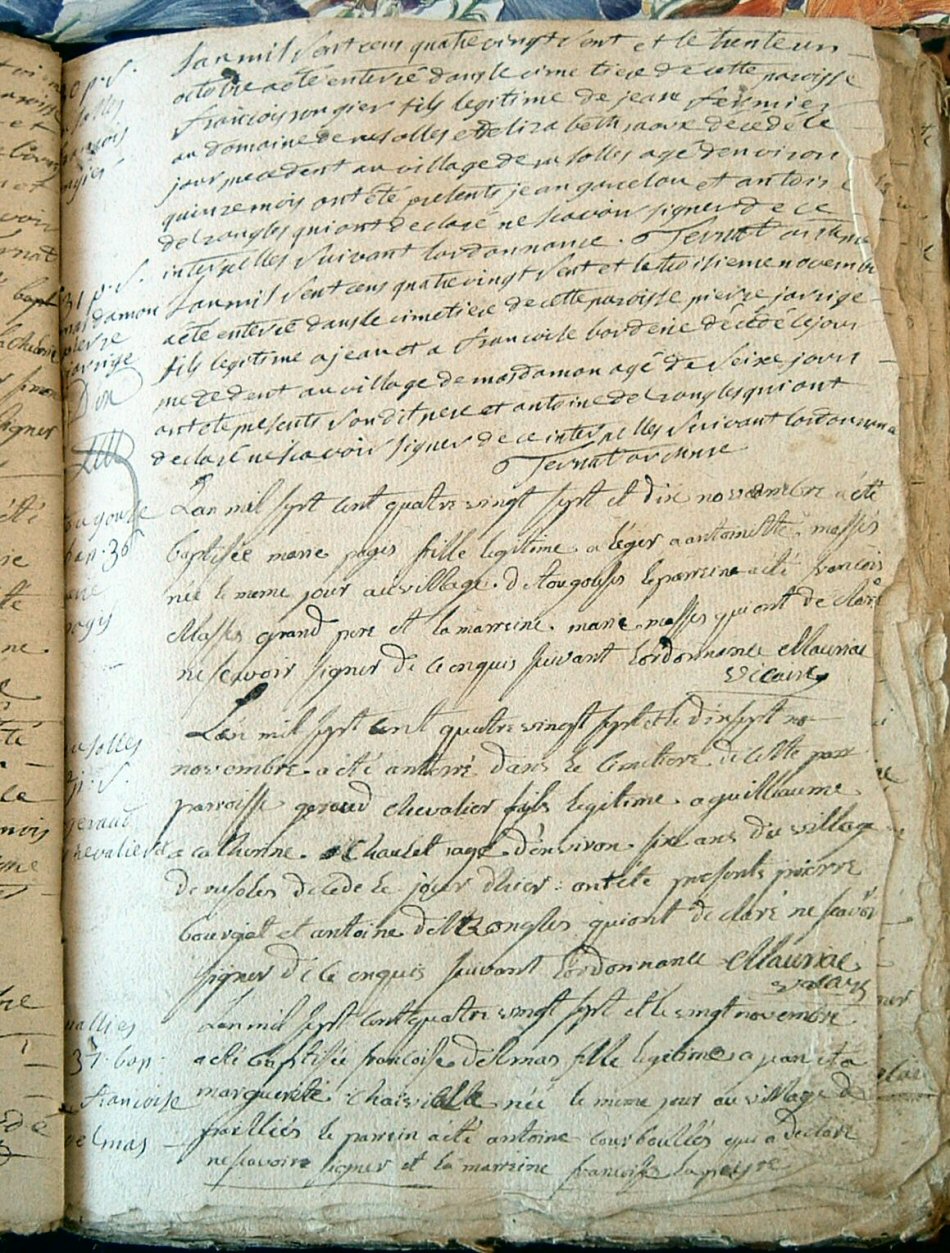 Lan mil sept cens quatre vingt sept et le trente un
octobre a été enterré dans le cimetiere de cette paroisse
françois rongier fils legitime de jean fermier
au domaine de rusolles et delizabeth decedé le
jour precedent au village de rusolles agé denviron
quinze mois ont été presents jean gancelou et antoine
delrongles qui ont declaré ne scavoir signer de ce
interpelles suivant lordonnance
Lan mil sept cens quatre vingt sept et le troisieme novembre
a été enterré dans le cimetiere de cette paroisse pierre jarrige
fils legitime a jean et a francoise borderie décédé le jour
precedent au village de masdamon agé de seize jours
ont été presents son dit pere et antoine delrongles qui ont
declaré ne scavoir signer de ce interpelles suivant lordonnance
Lan mil sept cent quatre vingt sept et dix novembre a été
baptisée marie pages fille legitime a léger a antoinette masses
née le meme jour au village le parrein a été francois
Masses grand pere et la marreine marie masses qui ont declaré
ne scavoir signer de ce enquis suivant lordonnance Mauriac
vicaire
Lan mil sept cent quatre vingt sept et le dix sept no
novembre a été anterré dans le cimetiere de cette parr
parroisse geraud chevalier fils legitime a guilliaume
a catherine Chaulet agé d'environ six ans du village
de rusoles décedé le jour d'hier ont été presents pierre
bourget et antoine delrongles qui ont declaré ne scavoir
signer de ce enquis suivant lordonnance Mauriac
vicaire
Lan mil sept cent quatre vingt sept et le vingt novembre
a été baptisée françoise delmas fille legitime a jean et a
marguerite née le meme jour au village de
frailliés le parrein a été antoine courboullés qui a declaré
ne scavoir signer et la marreine françoise lapeyre
p. S.
masdamon
pierre
jarrige
bap. 30
pagés
rusolles
geraud
chevalier
37. bap.
francoise
delmas